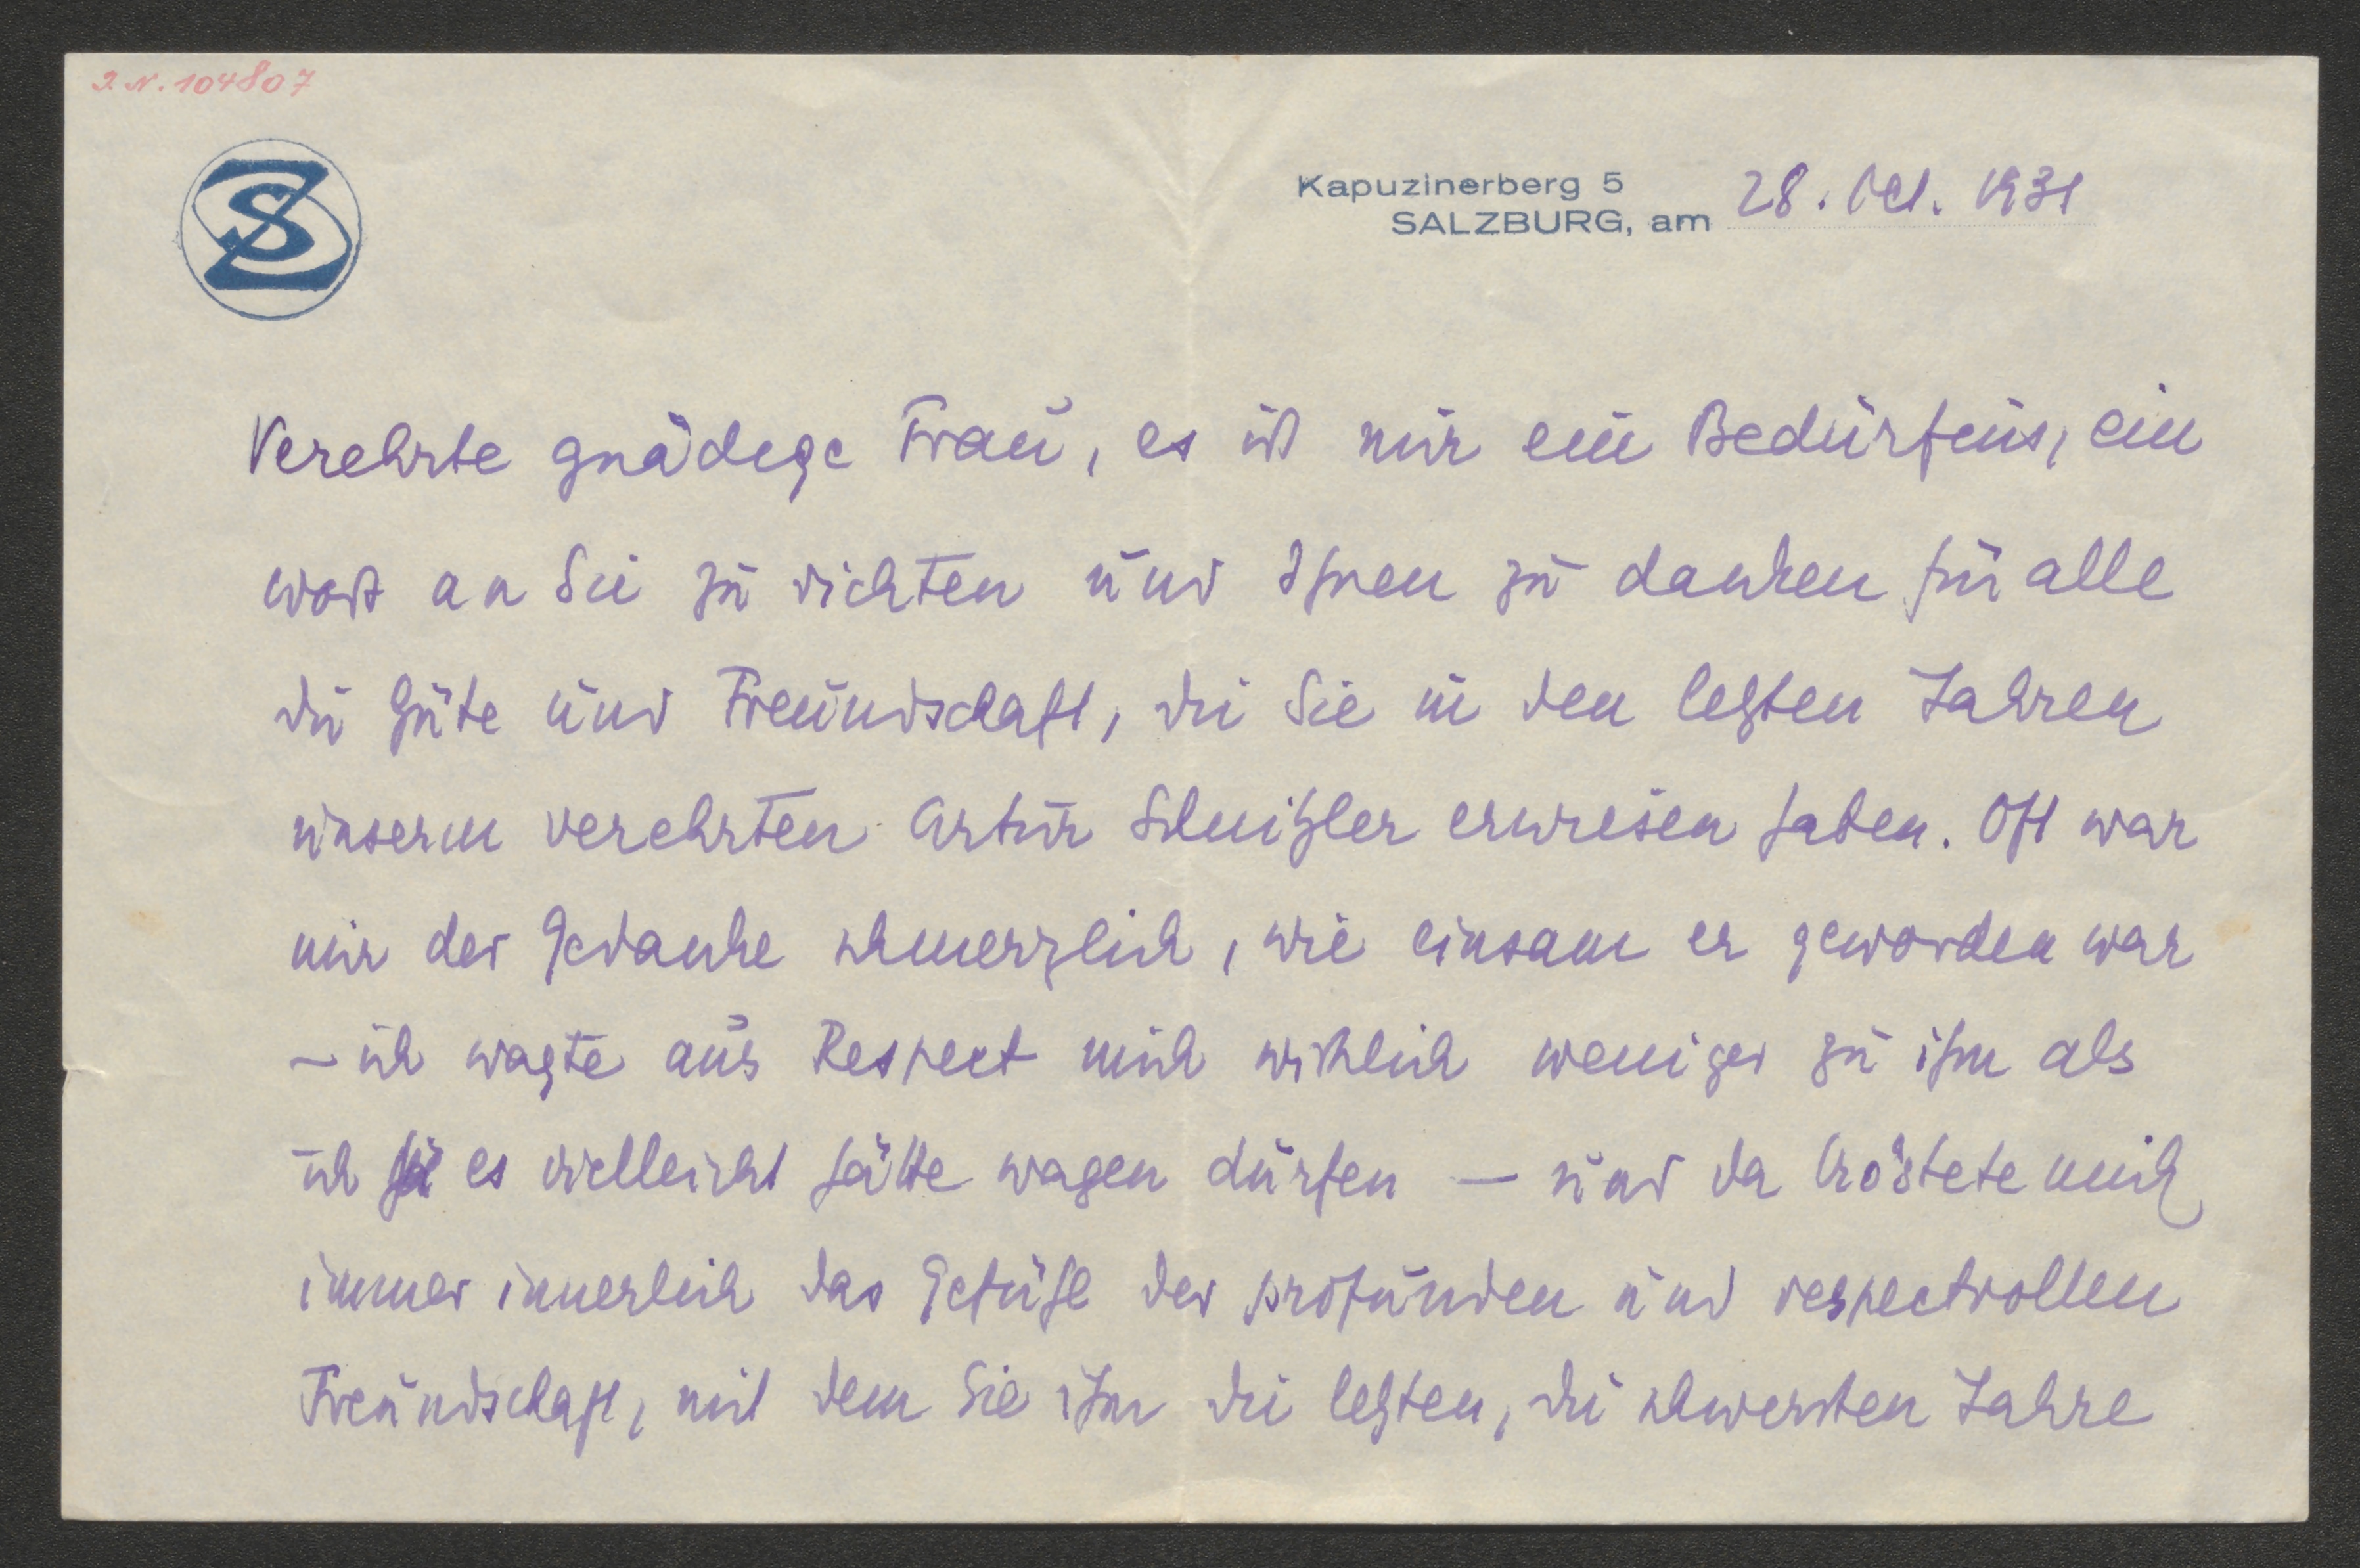 I. N. 104807
SZ
Kapuzinerberg 5
SALZBURG, am 28. Oct. 1931
Verehrte gnädige Frau, es ist mir ein Bedürfnis, ein
Wort an Sie zu richten und Ihnen zu danken für alle
die Güte und Freundschaft, die Sie in den letzten Jahren
unserm verehrten Artur Schnitzler erwiesen haben. Oft war
mir der Gedanke schmerzlich, wie einsam er geworden war
– ich wagte aus Respect mich wirklich weniger zu ihm als
ich es vielleicht hätte wagen dürfen – und da tröstete mich
immer innerlich das Gefühl der profunden und respectvollen
Freundschaft, mit dem Sie ihm die letzten, die schwersten Jahre